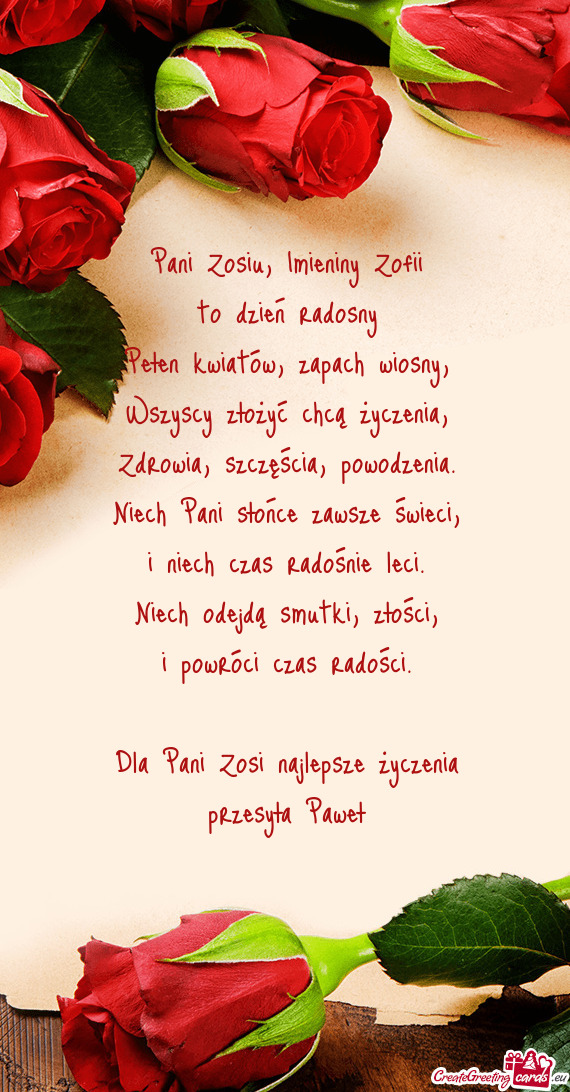 Pani Zosiu, Imieniny Zofii
to dzień radosny
Pełen kwiatów, zapach wiosny,
Wszyscy złożyć chcą życzenia,
Zdrowia, szczęścia, powodzenia.
Niech Pani słońce zawsze świeci,
i niech czas radośnie leci.
Niech odejdą smutki, złości,
i powróci czas radości.
Dla Pani Zosi najlepsze życzenia
przesyła Paweł
CreateGreetingcards.eu